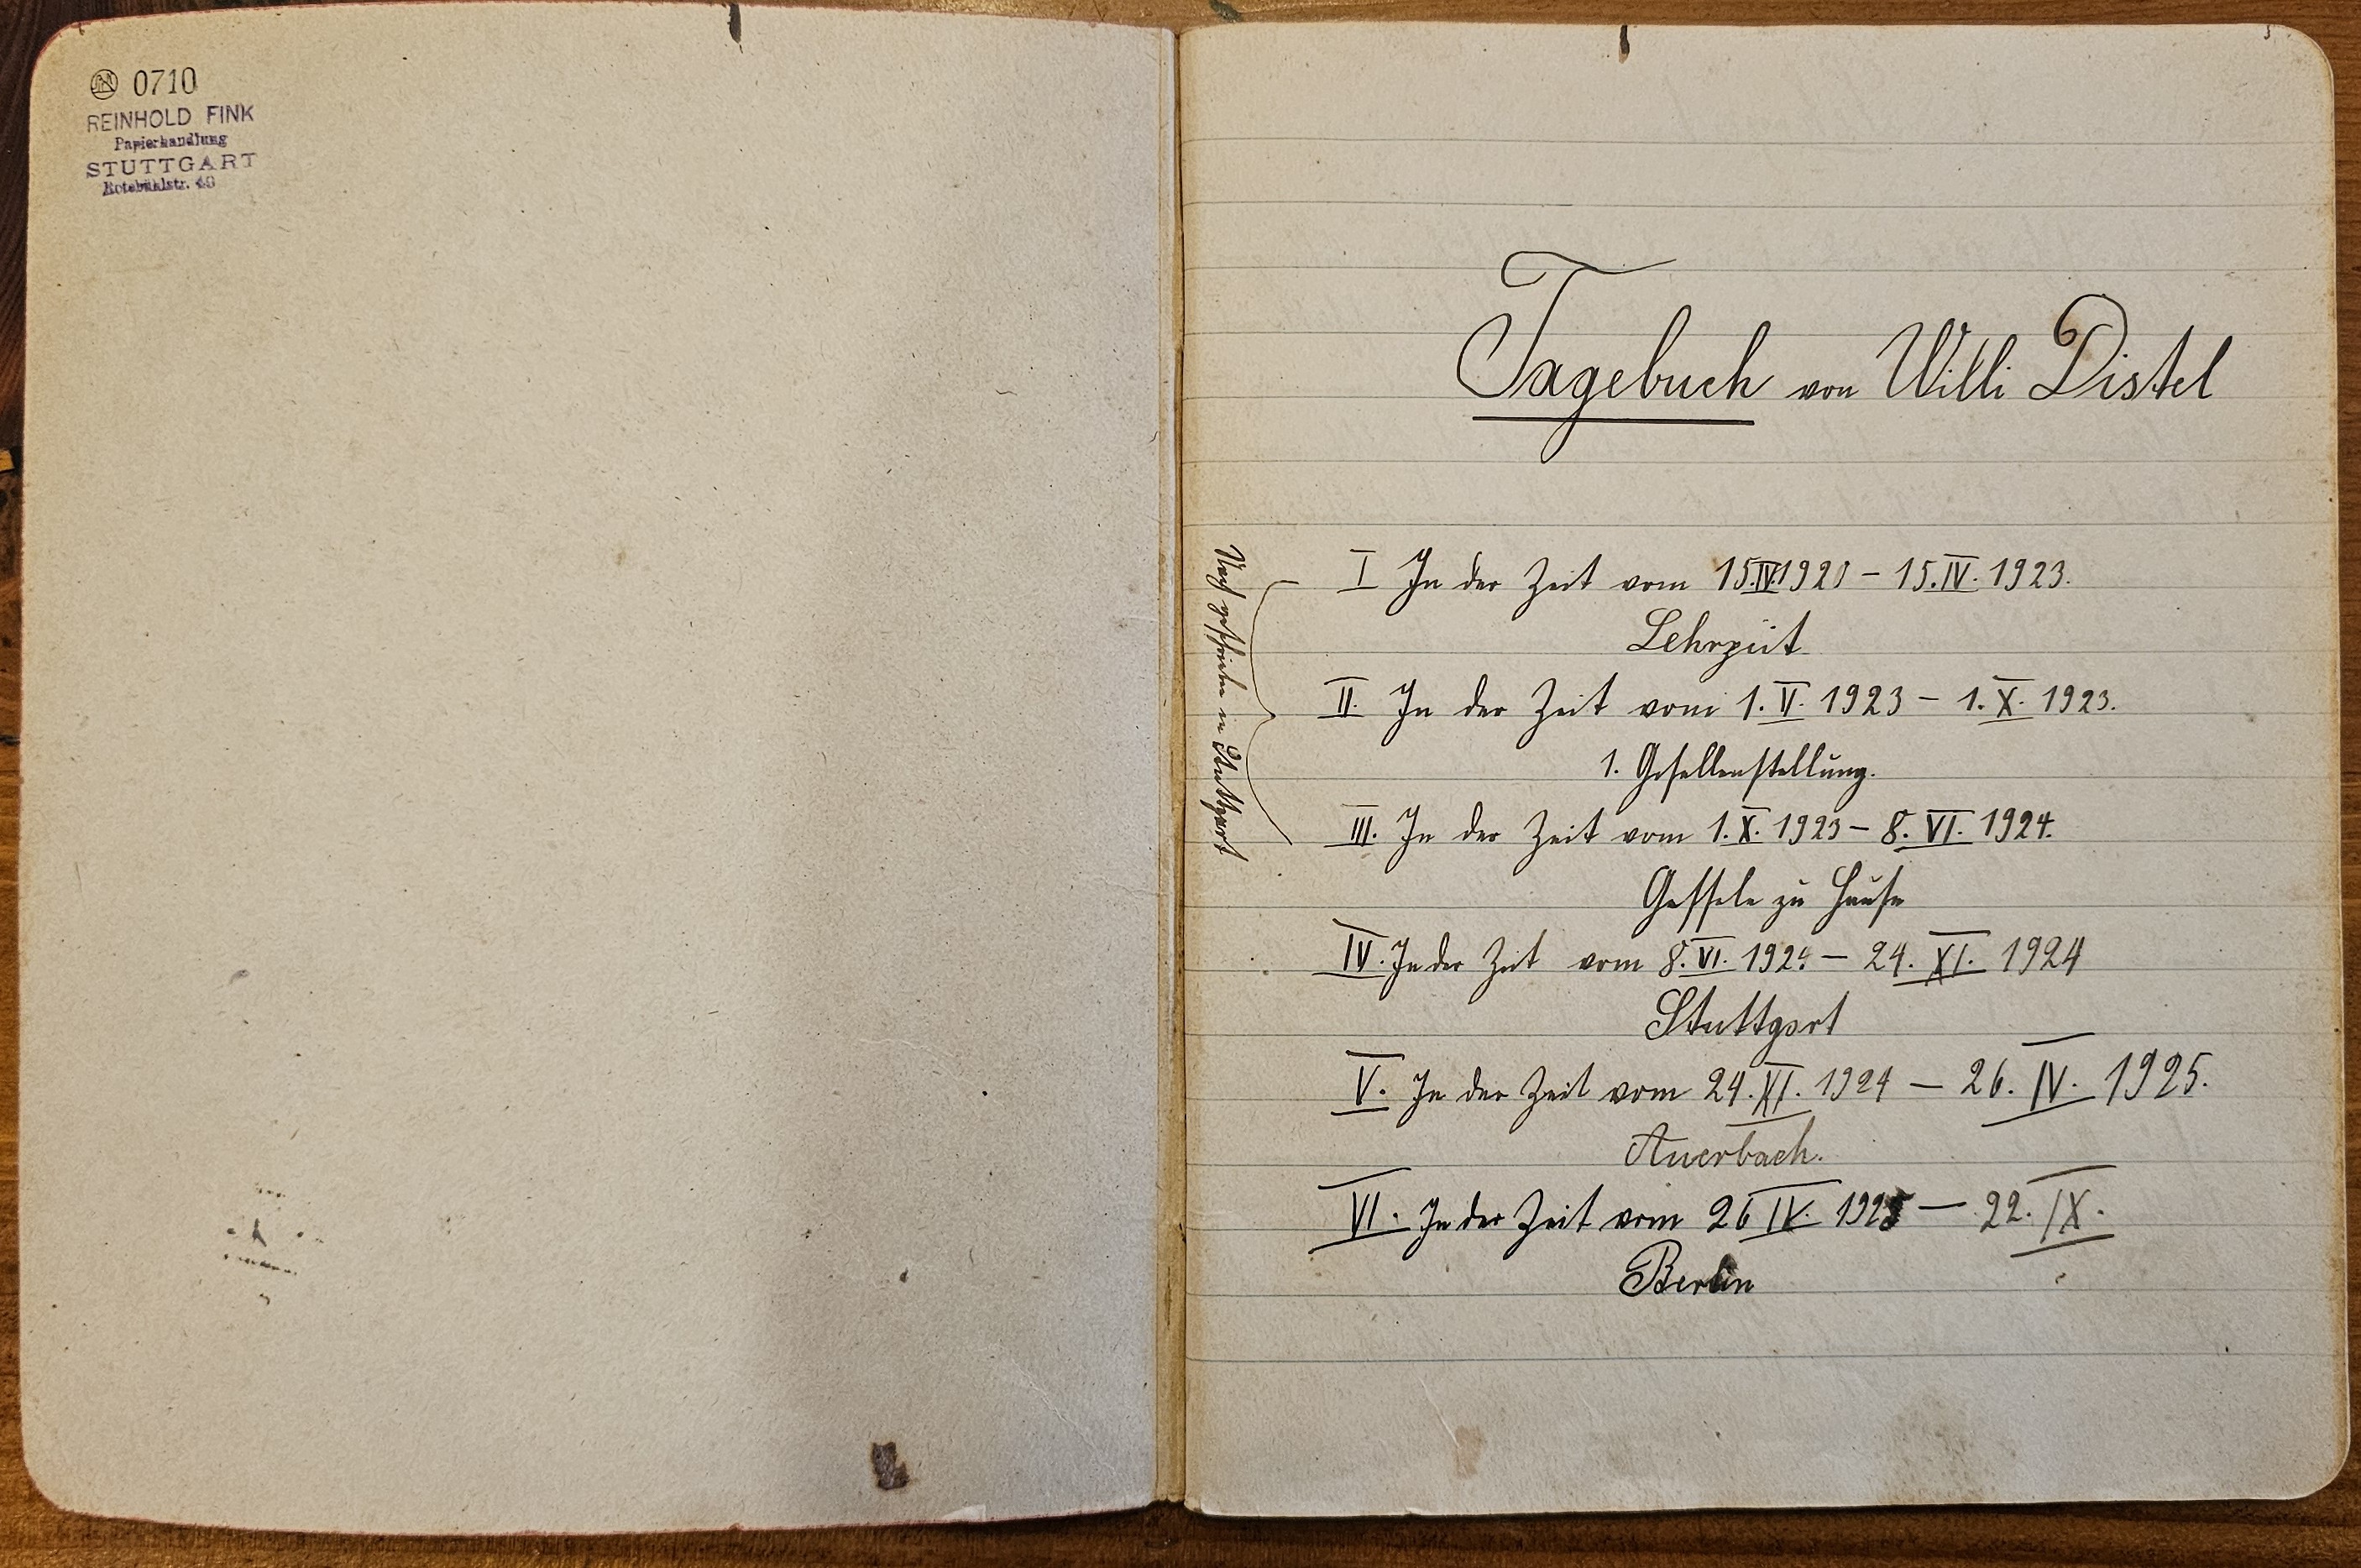 0710
REINHOLD FINK
Papierhandlung
STUTTGART
Rotebühlstr.
Tagebuch von Willi Distel
I In der Zeit vom 15.IV.1920 – 15.IV.1923.
Lehrzeit
II. In der Zeit vom 1.V.1923 – 1.X.1923.
1. Gesellenstellung.
III. In der Zeit vom 1.X.1923 – 8.VI.1924.
Gesselle zu Hause
IV. In der Zeit vom 8.VI.1924 – 24.XI.1924
Stuttgart
V. In der Zeit vom 24.XI.1924 – 26.IV.1925.
Auerbach.
VI. In der Zeit vom 26 IV. 1925 – 22.IX.
Berlin
Nach geschrieben in Stuttgart